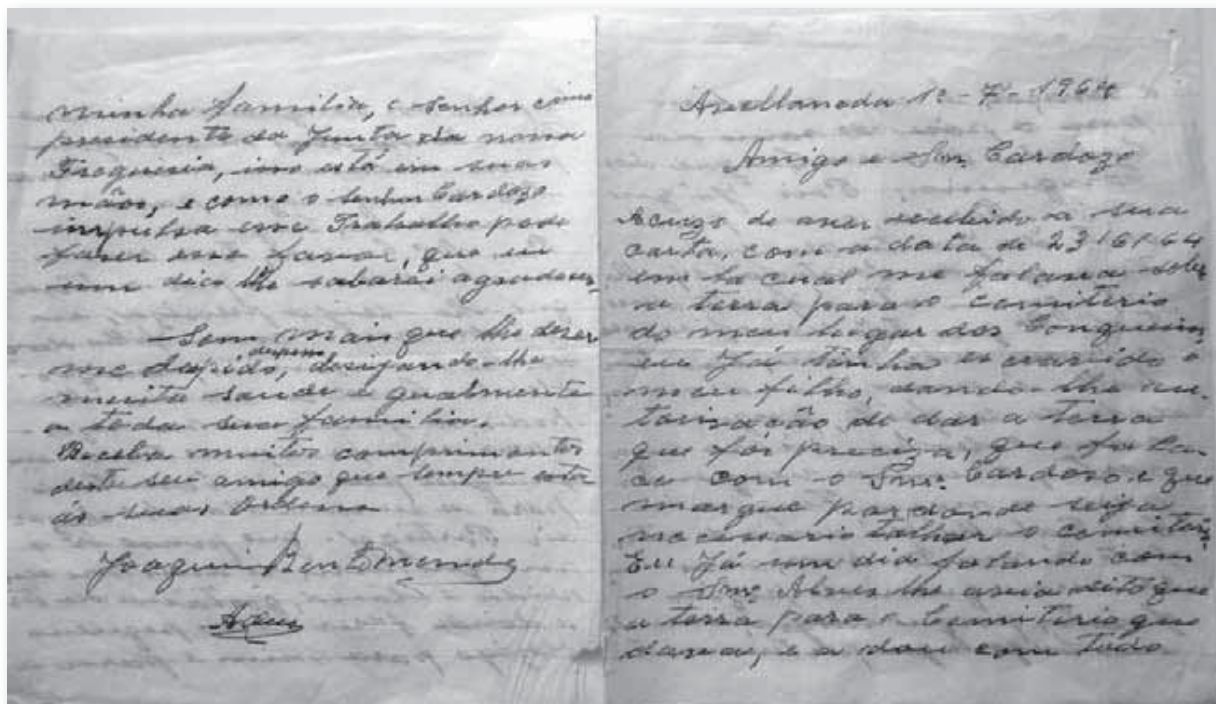 minha familia, o Senhor como
presidente da Junta da nossa
Freguesia, isso está em suas
mãos, e como o senhor Cardozo
impulsa esse Trabalho pode
fazer esse favor, que eu
um dia lhe sabarei agradecer,
Sem mais que lhe dezer
me dispido, desijando-lhe
muita saude e gualmente
a toda sua familia.
Receba muitos comprimentos
deste seu amigo que sempre está
ás suas ordens
Joaquim Bento Mendes
Adeus
Avellaneda 1º-7-1964
Amigo e Snr. Cardozo
Acuzo de aver recebido a sua
carta, com a data de 23/6/64
em la cual me falava sobre
a terra para o cemiterio
do meu lugar dos Conqueiros
eu Já tinha escravido o
meu filho, dando-lhe au-
torização de dar a terra
que fôr preciza, que fala-
ce com o Snr. Cardoso e que
marque por donde seija
necessario talhar o cemiterio
Eu Já um dia falando com
o Snr. Alves lhe avia dito que
a terra para o Cemiterio que
dava, e a dou com todo